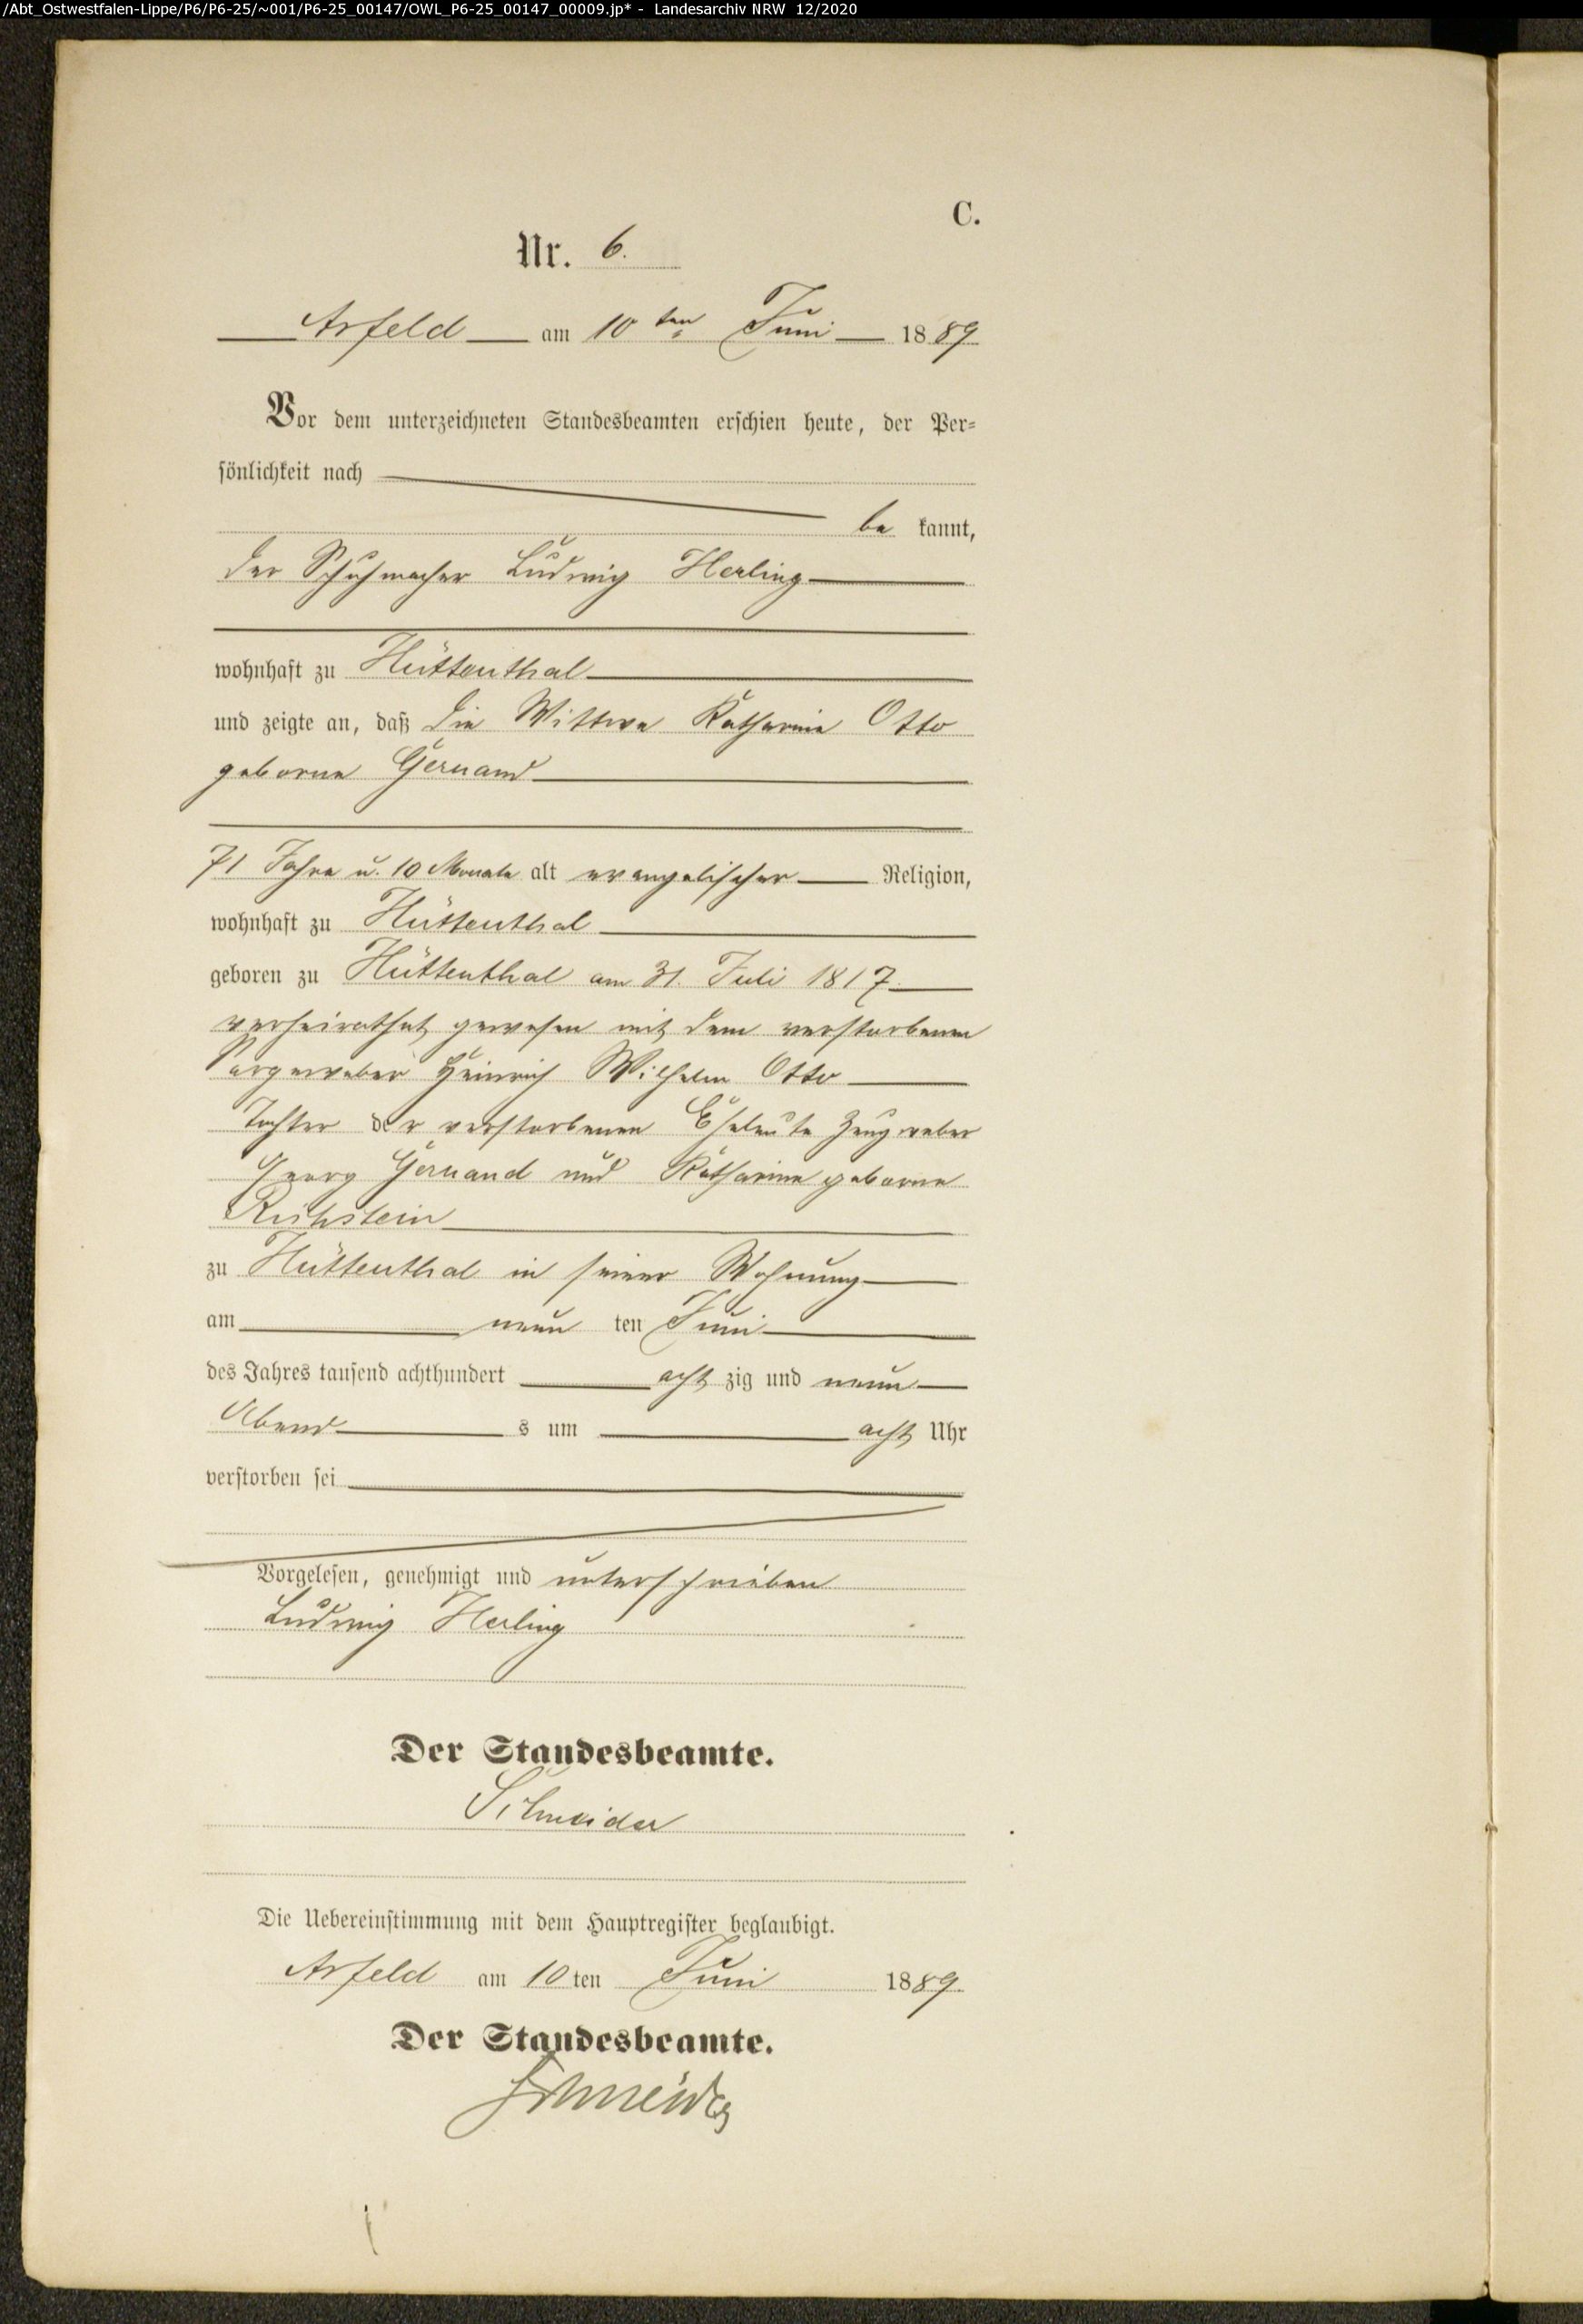 /Abt_Ostwestfalen-Lippe/P6/P6-25/~001/P6-25_00147/OWL_P6-25_00147_00009.jp* - Landesarchiv NRW 12/2020
C.
Nr. 6.
Arfeld am 10ten Juni 1889
Vor dem unterzeichneten Standesbeamten erschien heute, der Per-
sönlichkeit nach
be kannt,
der Schuhmacher Ludwig Herling
wohnhaft zu Hüttenthal
und zeigte an, daß die Wittwe Katharine Otto
geborne Gernand
71 Jahre u. 10 Monate alt evangelischer Religion,
wohnhaft zu Hüttenthal
geboren zu Hüttenthal am 31. Juli 1817.
verheirathet gewesen mit dem verstorbenen
Heinrich Wilhelm Otto
Tochter der verstorbenen Eheleute Zeugweber
Georg Gernand und Katharine geborne
zu Hüttenthal in seiner Wohnung
am neun ten Juni
des Jahres tausend achthundert acht zig und neun
Abend s um acht Uhr
verstorben sei
Vorgelesen, genehmigt und unterschrieben
Ludwig Herling
Der Standesbeamte.
Schneider
Die Uebereinstimmung mit dem Hauptregister beglaubigt.
Arfeld am 10 ten Juni 1889.
Der Standesbeamte.
Schneider